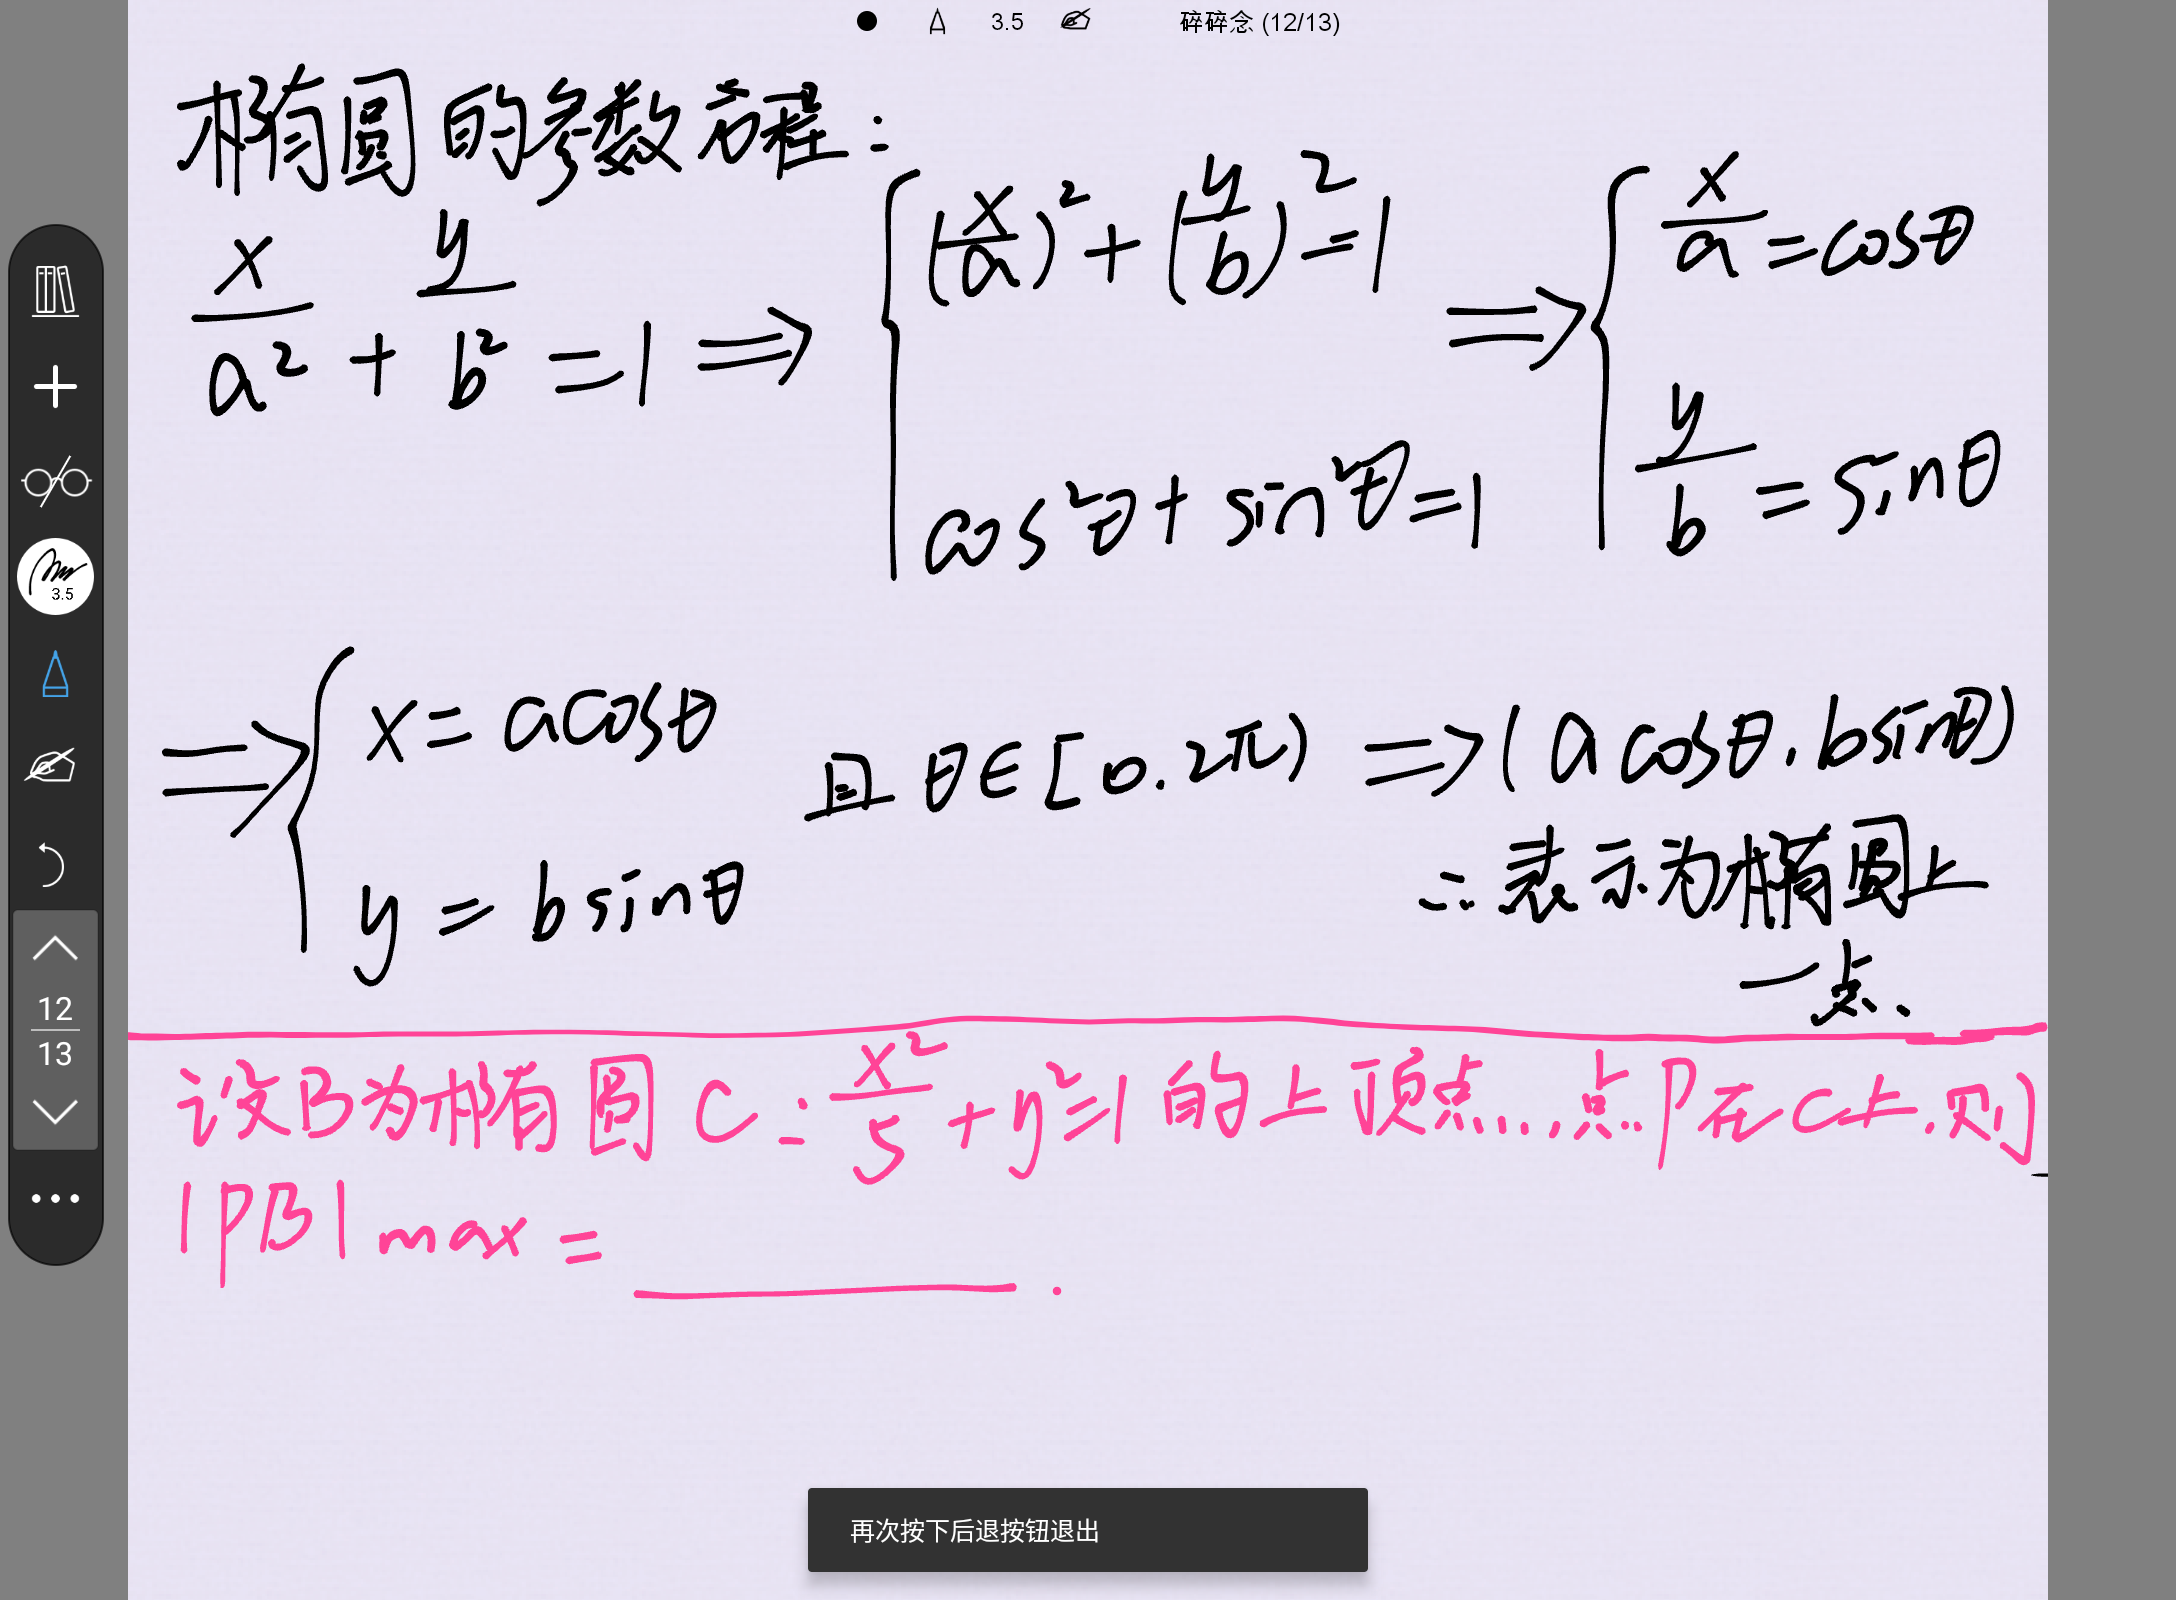 3.5 碎碎念 (12/13)
椭圆的参数方程:
x/a² + y/b² = 1 ⇒ { (x/a)² + (y/b)² = 1 ⇒ { x/a = cosθ
cos²θ + sin²θ = 1    y/b = sinθ
⇒ { x = acosθ
y = bsinθ
且 θ∈[0.2π) ⇒ (acosθ.bsinθ)
∴表示为椭圆上
一点.
设B为椭圆 C: x²/5 + y²=1 的上顶点...点P在C上.则
|PB|max = ______.
3.5
12
13
再次按下后退按钮退出